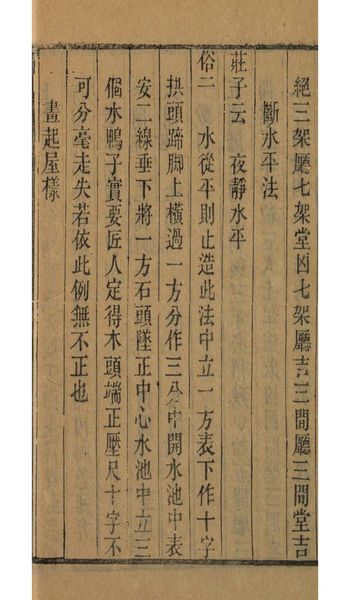 絕三架廳七架堂凶七架廳吉三間廳三間堂吉
斷水平法
莊子云　夜靜水平
俗云　水從平則止造此法中立一方表下作十字
拱頭蹄脚上橫過一方分作三分中開水池中表
安二線垂下將一方石頭墜正中心水池中立三
個水鴨子實要匠人定得木頭端正壓尺十字不
可分毫走失若依此例無不正也
畫起屋樣